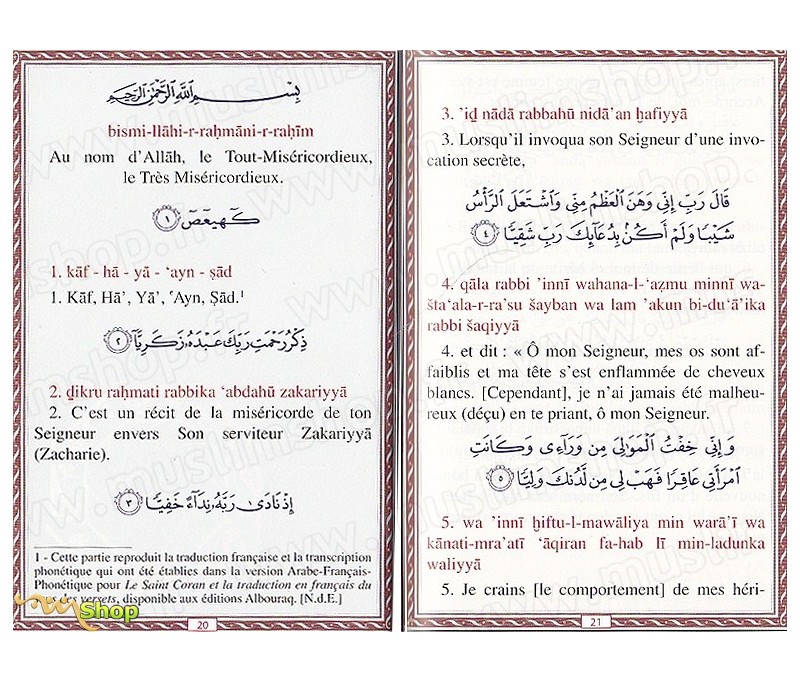 بِسْمِ اللَّهِ الرَّحْمَٰنِ الرَّحِيمِ
bismi-llāhi-r-raḥmāni-r-raḥīm
Au nom d’Allāh, le Tout-Miséricordieux,
le Très Miséricordieux.
كٓهيعٓصٓ ١
1. kāf - hā - yā - ‘ayn - ṣād
1. Kāf, Hā’, Yā’, ‘Ayn, Ṣād.¹
ذِكْرُ رَحْمَتِ رَبِّكَ عَبْدَهُۥ زَكَرِيَّآ ٢
2. ḏikru raḥmati rabbika ‘abdahū zakariyyā
2. C’est un récit de la miséricorde de ton
Seigneur envers Son serviteur Zakariyyā
(Zacharie).
إِذْ نَادَىٰ رَبَّهُۥ نِدَآءً خَفِيًّا ٣
1 - Cette partie reproduit la traduction française et la transcription
phonétique qui ont été établies dans la version Arabe-Français-
Phonétique pour Le Saint Coran et la traduction en français du
des versets, disponible aux éditions Albouraq. [N.d.E.]
Shop
20
3. ’iḏ nādā rabbahū nidā’an ḫafiyyā
3. Lorsqu’il invoqua son Seigneur d’une invo-
cation secrète,
قَالَ رَبِّ إِنِّى وَهَنَ ٱلْعَظْمُ مِنِّى وَٱشْتَعَلَ ٱلرَّأْسُ
شَيْبًا وَلَمْ أَكُنۢ بِدُعَآئِكَ رَبِّ شَقِيًّا ٤
4. qāla rabbi ’innī wahana-l-‘aẓmu minnī wa-
šta‘ala-r-ra’su šayban wa lam ’akun bi-du‘ā’ika
rabbi šaqiyyā
4. et dit : « Ô mon Seigneur, mes os sont af-
faiblis et ma tête s’est enflammée de cheveux
blancs. [Cependant], je n’ai jamais été malheu-
reux (déçu) en te priant, ô mon Seigneur.
وَإِنِّى خِفْتُ ٱلْمَوَٰلِىَ مِن وَرَآءِى وَكَانَتِ
ٱمْرَأَتِى عَاقِرًا فَهَبْ لِى مِن لَّدُنكَ وَلِيًّا ٥
5. wa ’innī ḫiftu-l-mawāliya min warā’ī wa
kānati-mra’atī ‘āqiran fa-hab lī min-ladunka
waliyyā
5. Je crains [le comportement] de mes héri-
21
www.muslimshop.fr